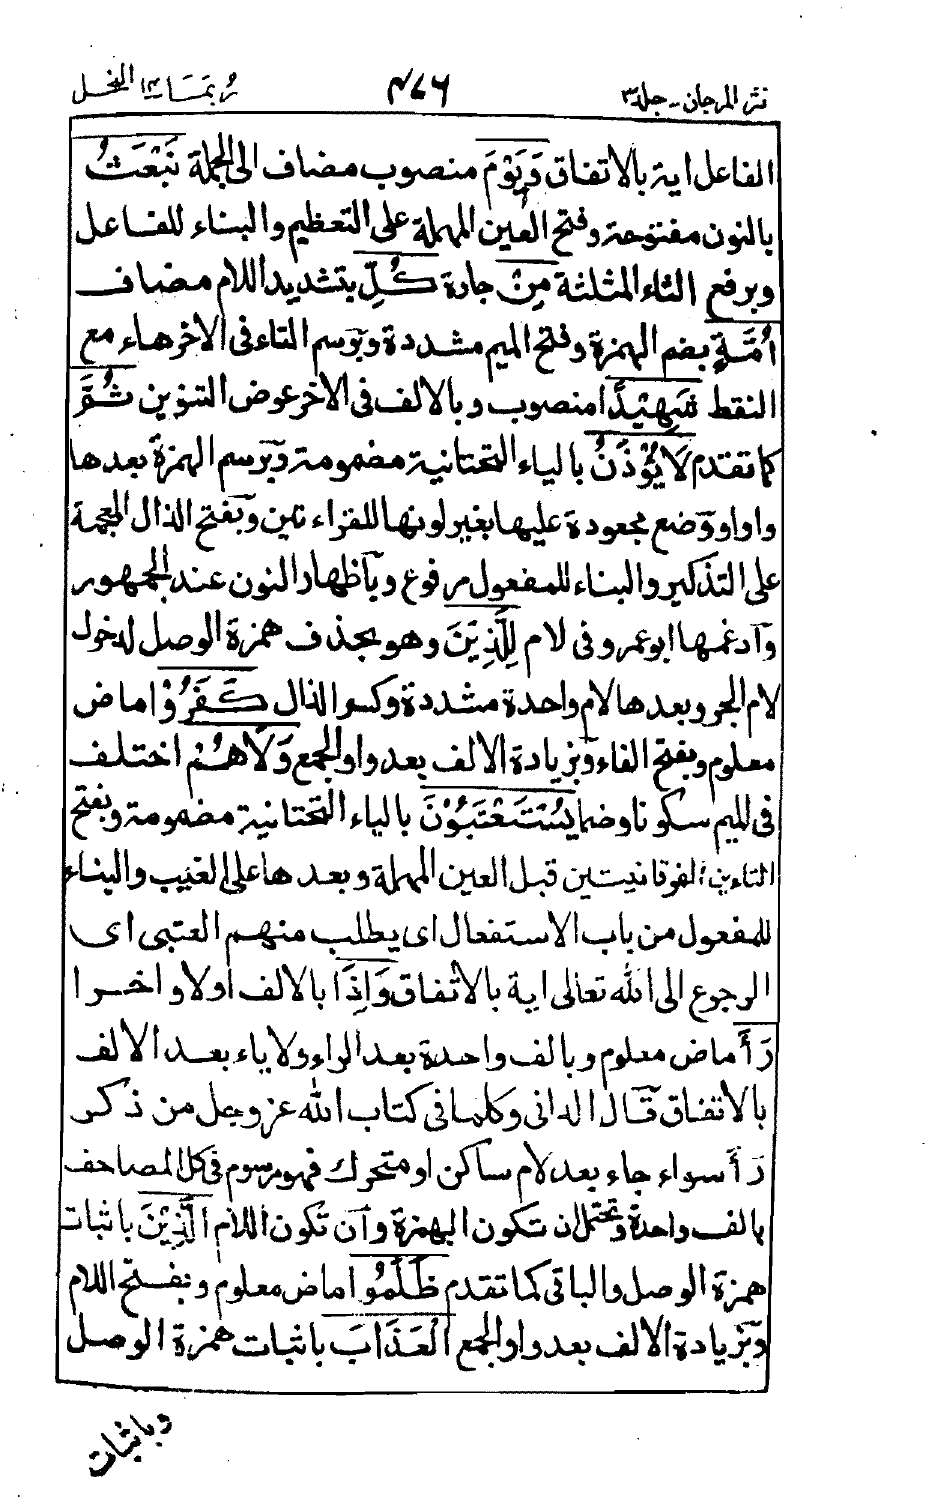 نثر المرجان - جلد ٣ ٤٧٦ ربما ١٤ النحل
الفاعل اية بالاتفاق وَيَوْمَ منصوب مضاف الى الجملة نَبْعَثُ
بالنون مفتوحة وفتح العين المهملة على التعظيم والبناء للفاعل
وبرفع الثاء المثلثة مِنْ جارة كُلِّ بتشديد اللام مضاف
اُمَّةٍ بضم الهمزة وفتح الميم مشددة وبرسم التاء فى الاخر هاء مع
النقط شَهِيْدًا منصوب وبالالف فى الاخر عوض التنوين ثُمَّ
كما تقدم لَا يُؤْذَنُ بالياء التحتانية مضمومة وبرسم الهمزة بعدها
واوا ووضع مجعودة عليها بغير لونها للقراءتين وبفتح الذال المعجمة
على التذكير والبناء للمفعول مرفوع وباظهار النون عند الجمهور
وادغمها ابوعمرو فى لام لِلَّذِيْنَ وهو بحذف همزة الوصل لدخول
لام الجر وبعدها لام واحدة مشددة وكسر الذال كَفَرُوْا ماض
معلوم وبفتح الفاء وبزيادة الالف بعد واو الجمع وَلَاهُمْ اختلف
فى الميم سكونا وضما يُسْتَعْتَبُوْنَ بالياء التحتانية مضمومة وبفتح
التاءين الفوقانيتين قبل العين المهملة وبعدها على الغيب والبناء
للمفعول من باب الاستفعال اى يطلب منهم العتبى اى
الرجوع الى الله تعالى اية بالاتفاق وَاِذَا بالالف اولا واخرا
رَأَ ماض معلوم وبالف واحدة بعد الراء ولا ياء بعد الالف
بالاتفاق قال الدانى وكلما فى كتاب الله عز وجل من ذكر
رَأَ سواء جاء بعد لام ساكن او متحرك فهو مرسوم فى كل المصاحف
بالف واحدة وتحتمل ان تكون الهمزة وان تكون اللام الَّذِيْنَ باثبات
همزة الوصل والباقى كما تقدم ظَلَمُوا ماض معلوم وبفتح اللام
وبزيادة الالف بعد واو الجمع الْعَذَابَ باثبات همزة الوصل
وباثبات